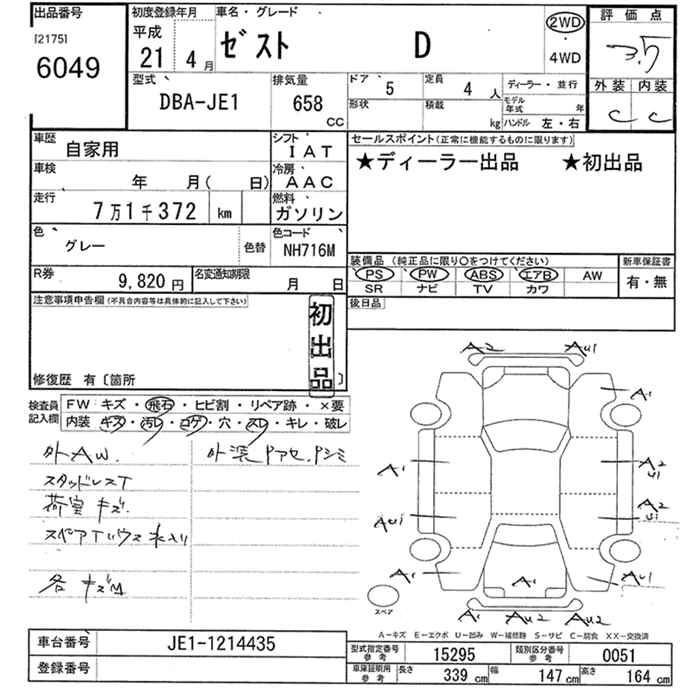 出品番号 初度登録年月 車名・グレード 評価点
[2175] 平成
6049 21 4月 ゼスト D 2WD ・ 4WD 3.5
型式 排気量 ドア 定員 ディーラー・並行 外装 内装
DBA-JE1 658 CC 5 4人 C C
形状 積載 kg モデル年式 年
ハンドル 左・右
車歴 自家用 シフト IAT セールスポイント(正常に機能するものに限ります)
★ディーラー出品 ★初出品
車検 年 月( 日) 冷房 AAC
走行 7万1千372 km 燃料 ガソリン
色 グレー 色替 色コード NH716M
装備品(純正品に限り〇をつけてください) 新車保証書
PS PW ABS エアB AW 有・無
SR ナビ TV カワ
R券 9,820円 名変通知期限 月 日
後日品
注意事項申告欄(不具合内容等は具体的に記入して下さい)
初出品
修復歴 有〔箇所 〕
検査員記入欄 FW キズ・飛石・ヒビ割・リペア跡・×要
内装 キズ・汚レ・コゲ・穴・スレ・キレ・破レ
外AW. 外装Pアセ、Pシミ
スタッドレスT
荷室キズ
各キズM
A2 AU1
A1
A1 A2 U1
AU1 A2 U1
A1 A1 AU1
スペア A1 AU2 AU2
A-キズ E-エクボ U-凹み W-補修跡 S-サビ C-腐食 XX-交換済
車台番号 JE1-1214435 型式指定番号 参考 15295 類別区分番号 参考 0051
登録番号 車庫証明用 参考 長さ 339 cm 幅 147 cm 高さ 164 cm